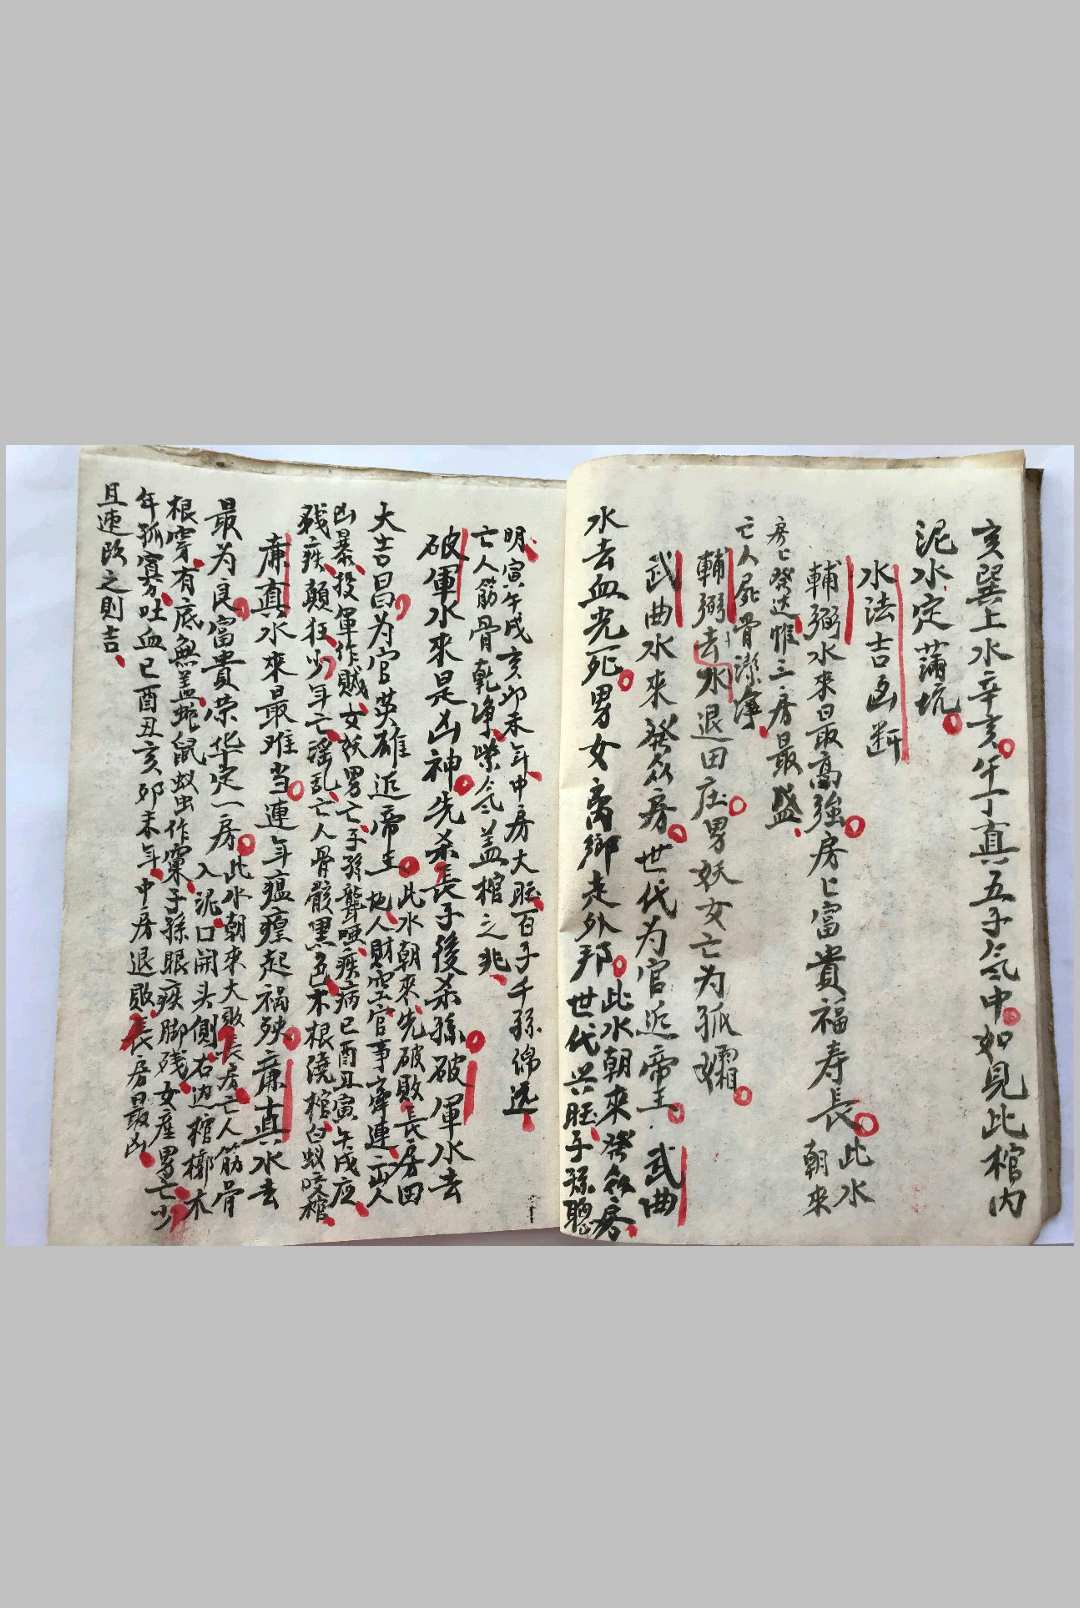 亥巽上水辛亥午丁真五子気中如見此棺内
泥水定蒲坑
水法吉凶断
輔弼水来最高強房匕富貴福寿長此水
朝來
房匕發达惟三房最盛
亡人屍骨潔净
輔弼去水退田庄男妖女亡为孤孀
武曲水来發众房世代为官近帝主武曲
水去血光死男女离鄉走外邦此水朝来發众房
世代兴旺子孫聰
明寅午戌亥卯未年中房大旺百子千孫绵远
亡人筋骨乾净紫気盖棺之兆
破軍水来是凶神先杀長子後杀孫破軍水去
大吉昌为官英雄近帝主此水朝来先破敗長房田
地人財空官事牢連出人
凶暴投軍作賊女妖男亡子孫聾哑疾病巳酉丑寅午戌应
残疾顛狂少年亡滛乱亡人骨骸黑色木根绕棺白蚁咬棺
廉真水来最难当連年瘟瘽起祸殃廉真水去
最为良富貴荣华定一房此水朝来大敗長房亡人筋骨
入泥口開头側右边棺槨木
根穿有底無盖蛇鼠蚁虫作窠子孫眼疾脚残女産男亡少
年孤寡吐血巳酉丑亥卯未年中房退敗長房最凶
且速改之則吉